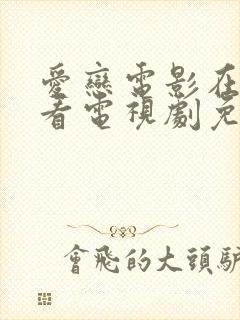 愛戀電影在
看電視劇免
會飛的大頭驢